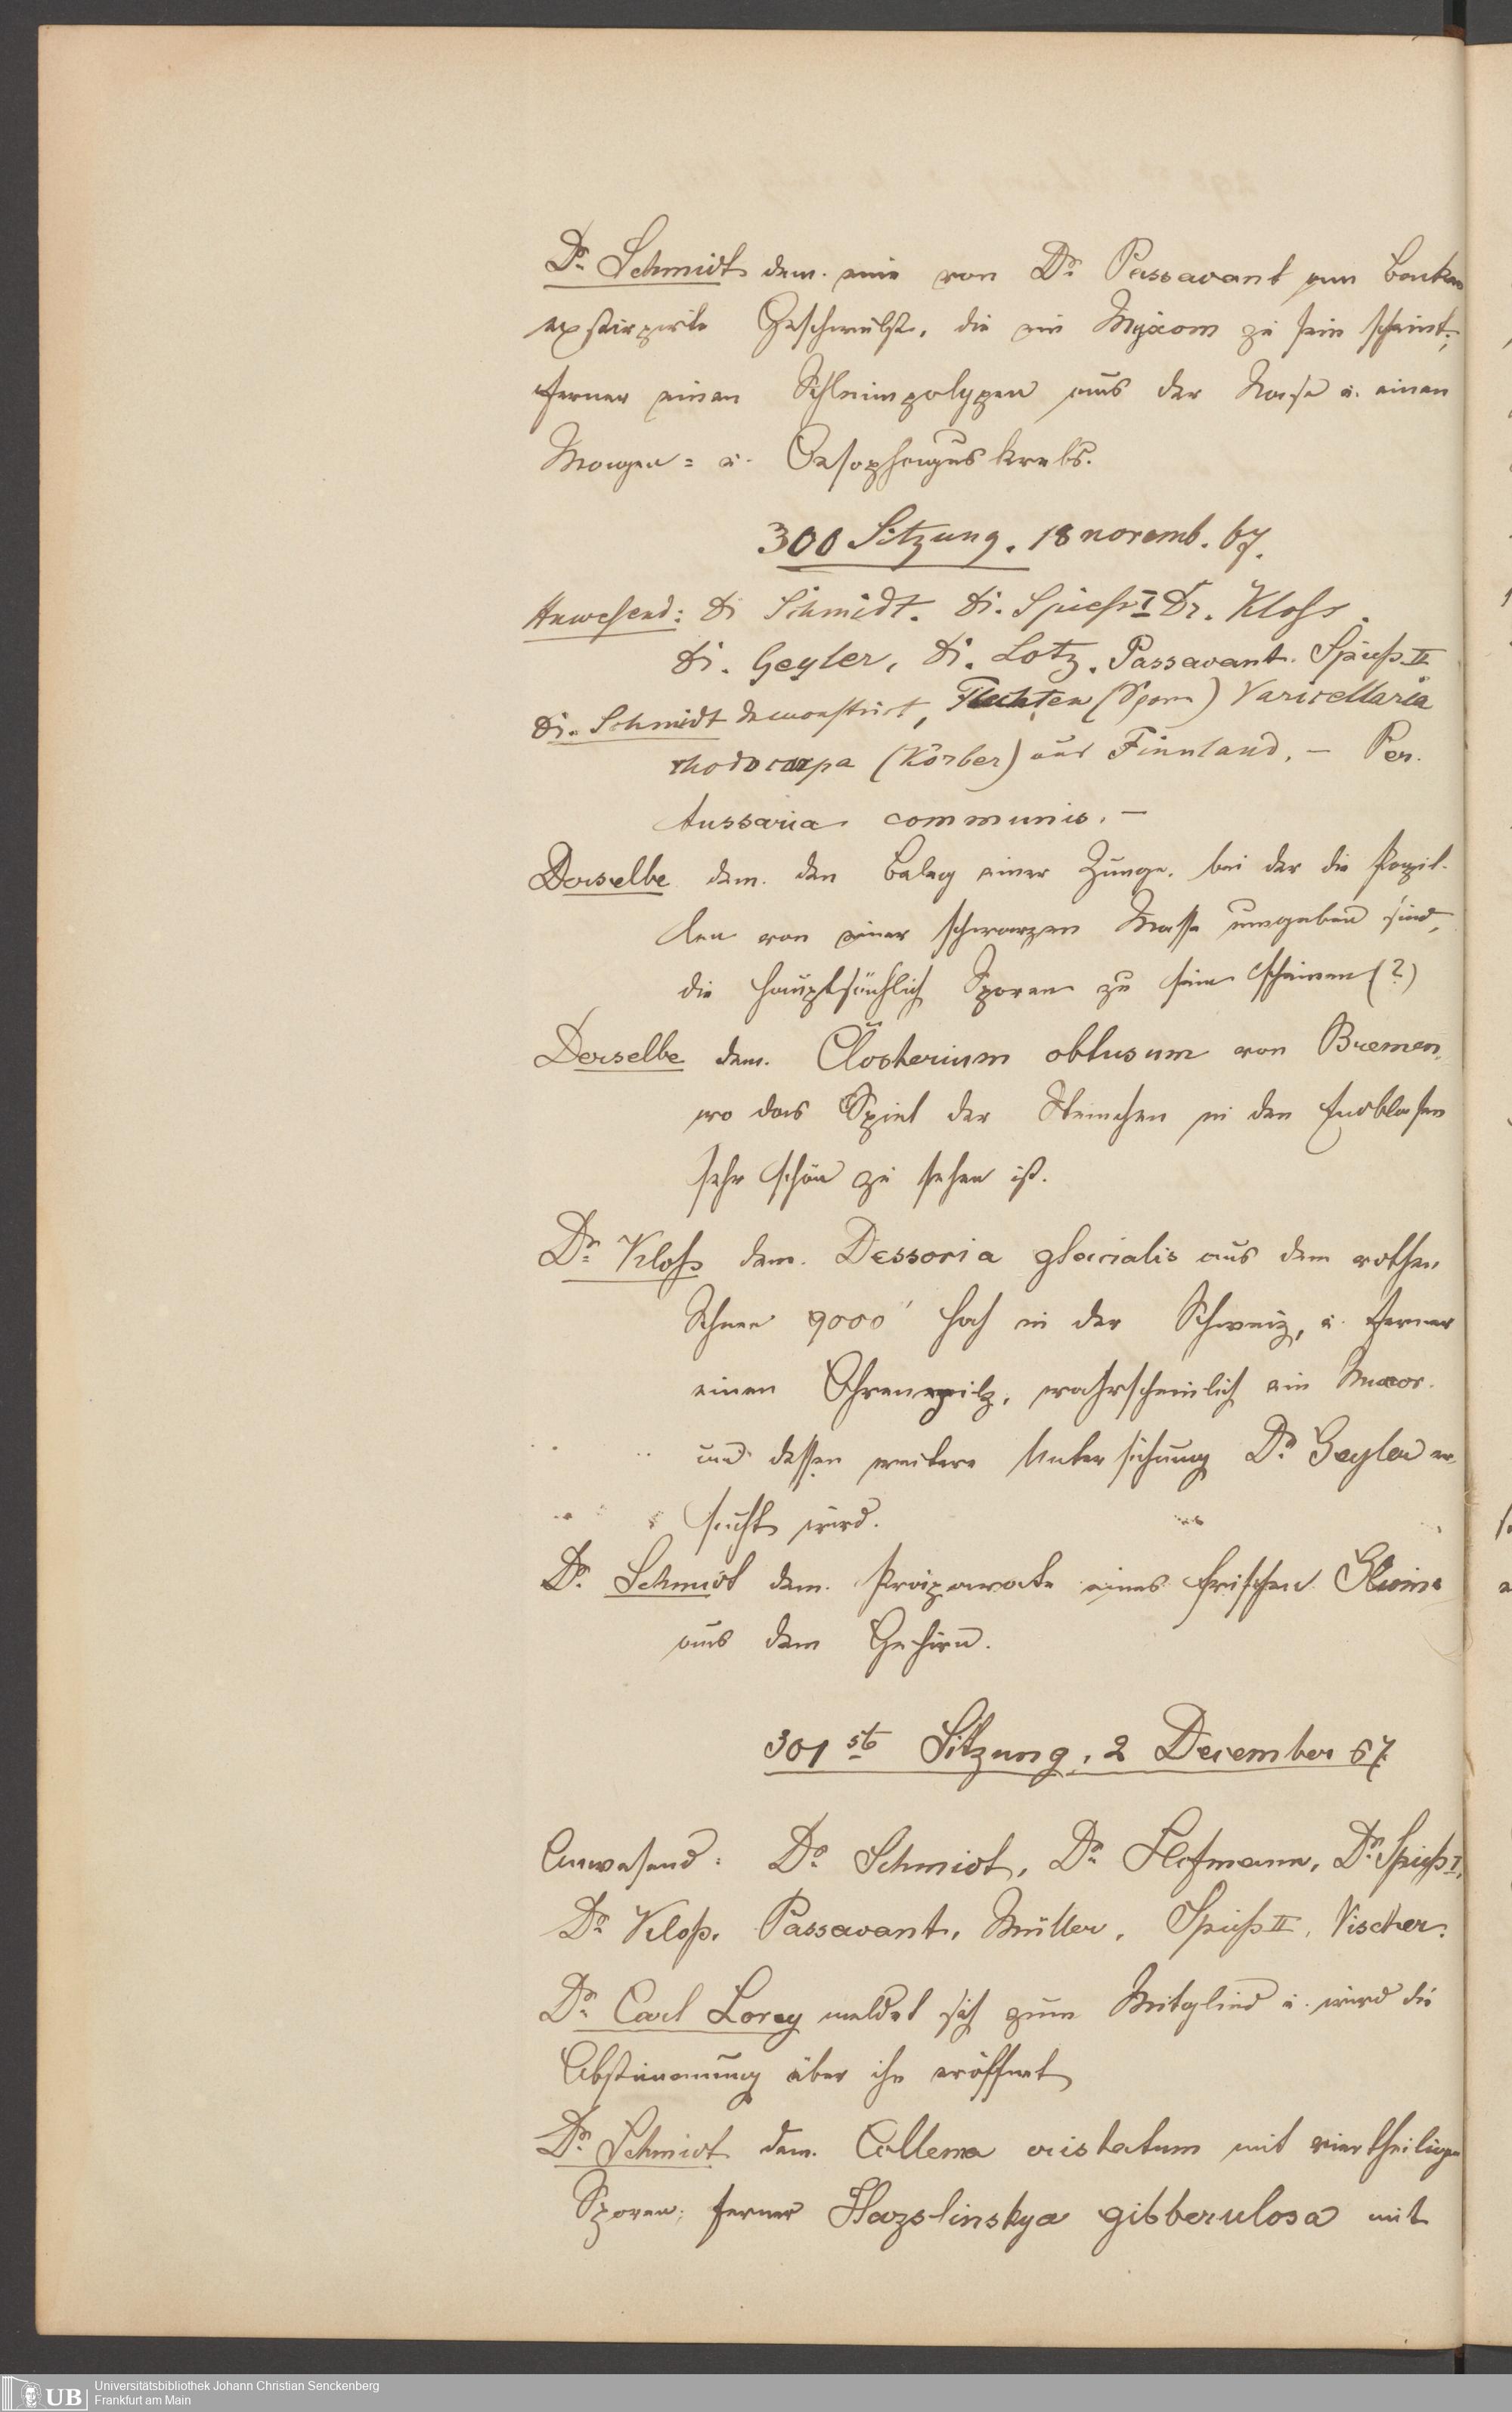 Dr. Schmidt dem. eine von Dr. Passavant am Backen
exstirpirte Geschwulst, die ein Myxom zu sein scheint;
ferner einen Schleimpolypen aus der Nase u. einen
Magen= u. Oesophaguskrebs.
300 Sitzung. 18 novemb. 67.
Anwesend: Dr Schmidt. Dr. Spieß I Dr. Kloß.
Dr. Geyler, Dr. Lotz. Passavant. Spieß II
Dr. Schmidt demonstrirt, Flechten (Spore) Varicellaria
rhodocarpa (Körber) aus Finnland. — Per.
tussaria communis. —
Derselbe dem. den Beleg einer Zunge, bei der die Papil-
len von einer schwarzen Masse umgeben sind,
die hauptsächlich Sporen zu sein scheinen (?)
Derselbe dem. Closterium obtusum von Bremen,
wo das Spiel der Steinchen in den Endblasen
sehr schön zu sehen ist.
Dr Kloß dem. Dessoria glacialis aus dem rothen
Schnee 9000' hoch in der Schweiz, u. ferner
einen Ohrenpilz, wahrscheinlich ein Mucor.
und dessen weitere Untersuchung Dr. Geyler er-
sucht wird.
Dr. Schmidt dem. Präparate eines frischen Glioms
aus dem Gehirn.
301ste Sitzung, 2 December 67.
Anwesend: Dr. Schmidt, Dr. Hofmann, Dr. Spieß I,
Dr. Kloß, Passavant, Müller, Spieß II, Vischer.
Dr. Carl Lorey meldet sich zum Mitglied u. wird die
Abstimmung über ihn eröffnet
Dr. Schmidt dem. Collema cristatum mit viertheiligen
Sporen; ferner Hazslinskya gibberulosa mit
UB
Universitätsbibliothek Johann Christian Senckenberg
Frankfurt am Main